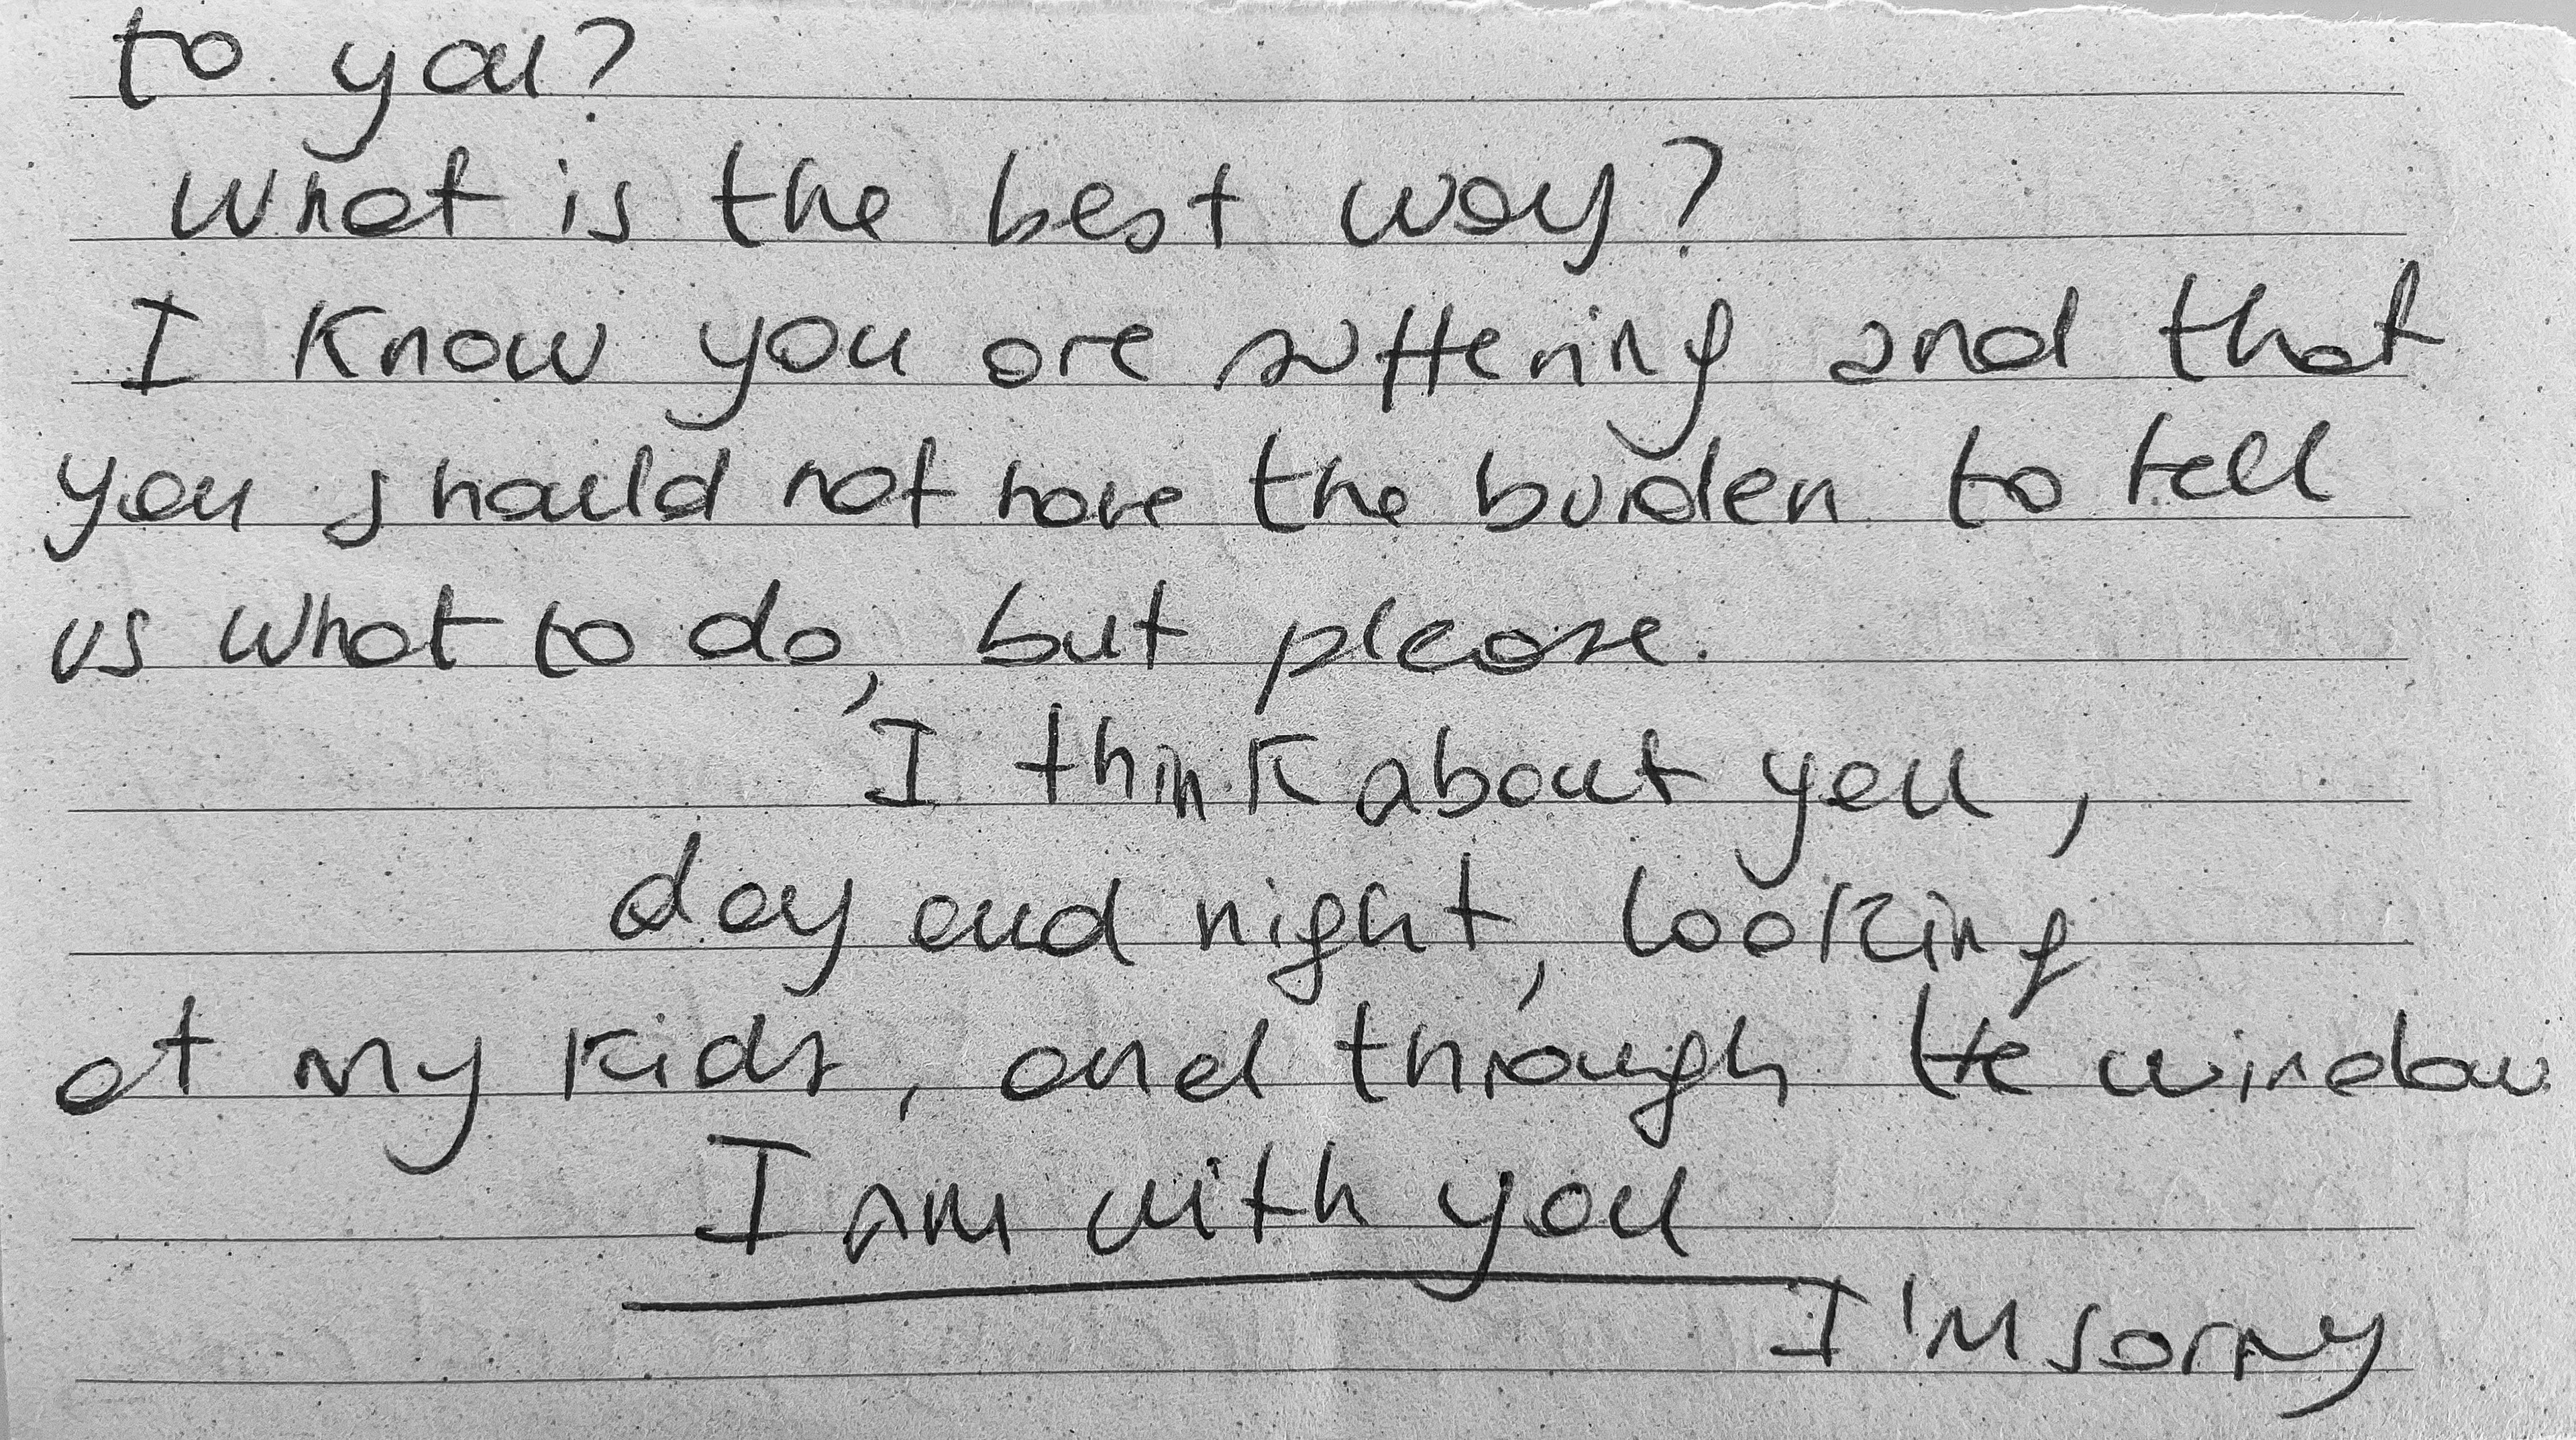 to you?
What is the best way?
I know you are suffering and that
you should not have the burden to tell
us what to do, but please.
I think about you,
day and night, looking
at my kids, and through the window
I am with you
I'm sorry